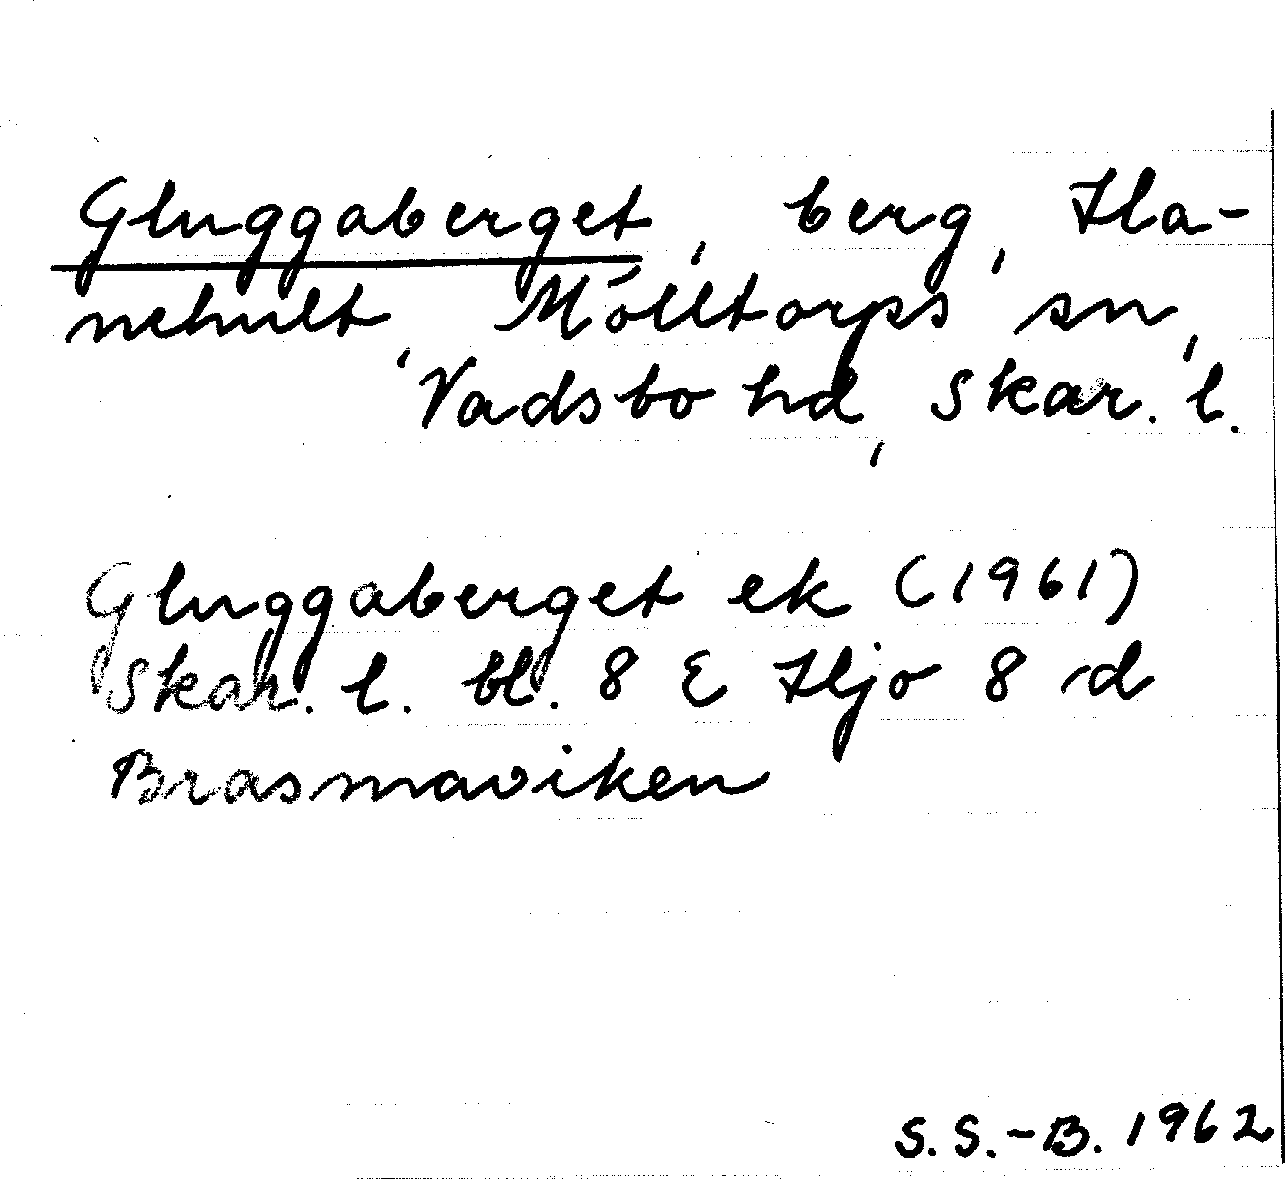 Gluggaberget, berg, Ha-
nehult, Mölltorps sn,
Vadsbo hd, Skar. l.
Gluggaberget ek (1961)
Skar. l. bl. 8 E Hjo 8 d
Brasmaviken
S.S.-B. 1962